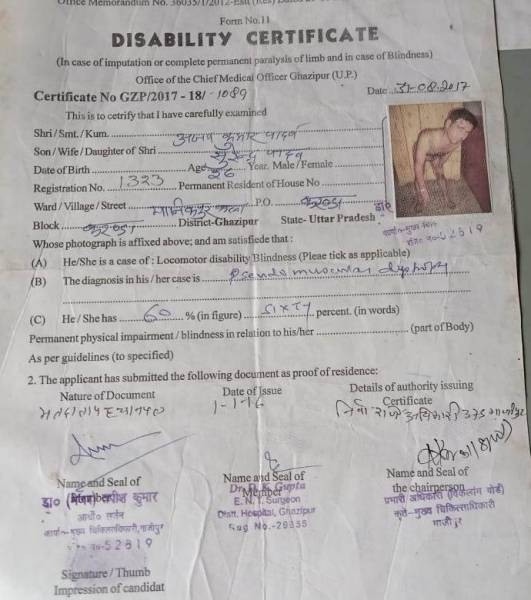 Office Memorandum No. 36035/1/2012-Estt (Res)
Form No.11
DISABILITY CERTIFICATE
(In case of imputation or complete permanent paralysis of limb and in case of Blindness)
Office of the Chief Medical Officer Ghazipur (U.P.)
Certificate No GZP/2017 - 18/-1089 Date 31-08-2017
This is to cetrify that I have carefully examined
Shri / Smt. / Kum. अजय कुमार यादव
Son / Wife / Daughter of Shri सुरेन्द्र यादव
Date of Birth Age 26 Year. Male / Female
Registration No. 1323 Permanent Resident of House No
Ward / Village / Street P.O. करण्डा
Block करण्डा District-Ghazipur State- Uttar Pradesh
Whose photograph is affixed above; and am satisfiede that :
(A) He/She is a case of : Locomotor disability Blindness (Pleae tick as applicable)
(B) The diagnosis in his / her case is Pseudo muscular
(C) He / She has 60 % (in figure) sixty percent. (in words)
Permanent physical impairment / blindness in relation to his/her (part of Body)
As per guidelines (to specified)
2. The applicant has submitted the following document as proof of residence:
Nature of Document Date of Issue Details of authority issuing
Certificate
मतदाता पहचान पत्र 1-1-16
Name and Seal of Name and Seal of Name and Seal of
Member Member the chairperson
डा० कुमार Dr. D. K. Gupta प्रभारी अधिकारी (विकलांग बोर्ड)
आर्थो० सर्जन E. N. T. Surgeon कृते-मुख्य चिकित्साधिकारी
कार्या०-मुख्य चिकित्साधिकारी, गाजीपुर Distt. Hospital, Ghazipur गाजीपुर
52819 Reg No.-29355
Signature / Thumb
Impression of candidat